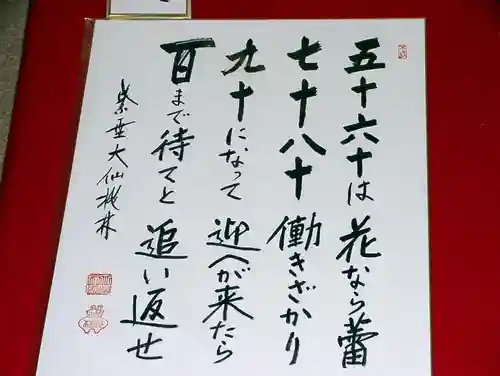 五十六十は 花なら蕾
七十八十 働きざかり
九十になって 迎へが来たら
百まで待てと 追い返せ
大仙